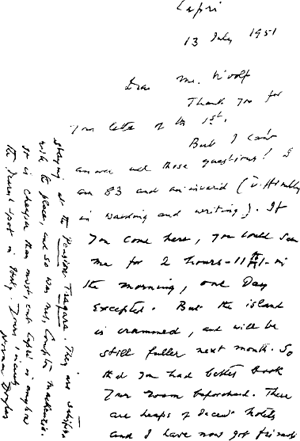 Capri
13 July 1951
Dear Mr. Woolf
Thank you for
your letter of the 1st.
But I can't
answer all those questions! I
am 83 and an invalid (difficulty
in reading and writing). If
you come here, you could see
me for 2 hours - 11 - in
the morning, one Day
excepted. But the island
is crammed, and will be
still fuller next month. So
that you had better book
your room beforehand. There
are heaps of decent hotels
and I have now got friends
staying at the Pensione Tragara. They are satisfied
with the place, and so was Mrs. Compton Mackenzie.
It is cheaper than most, and Capri is anyhow
the dearest spot in Italy. Yours sincerely
Norman Douglas